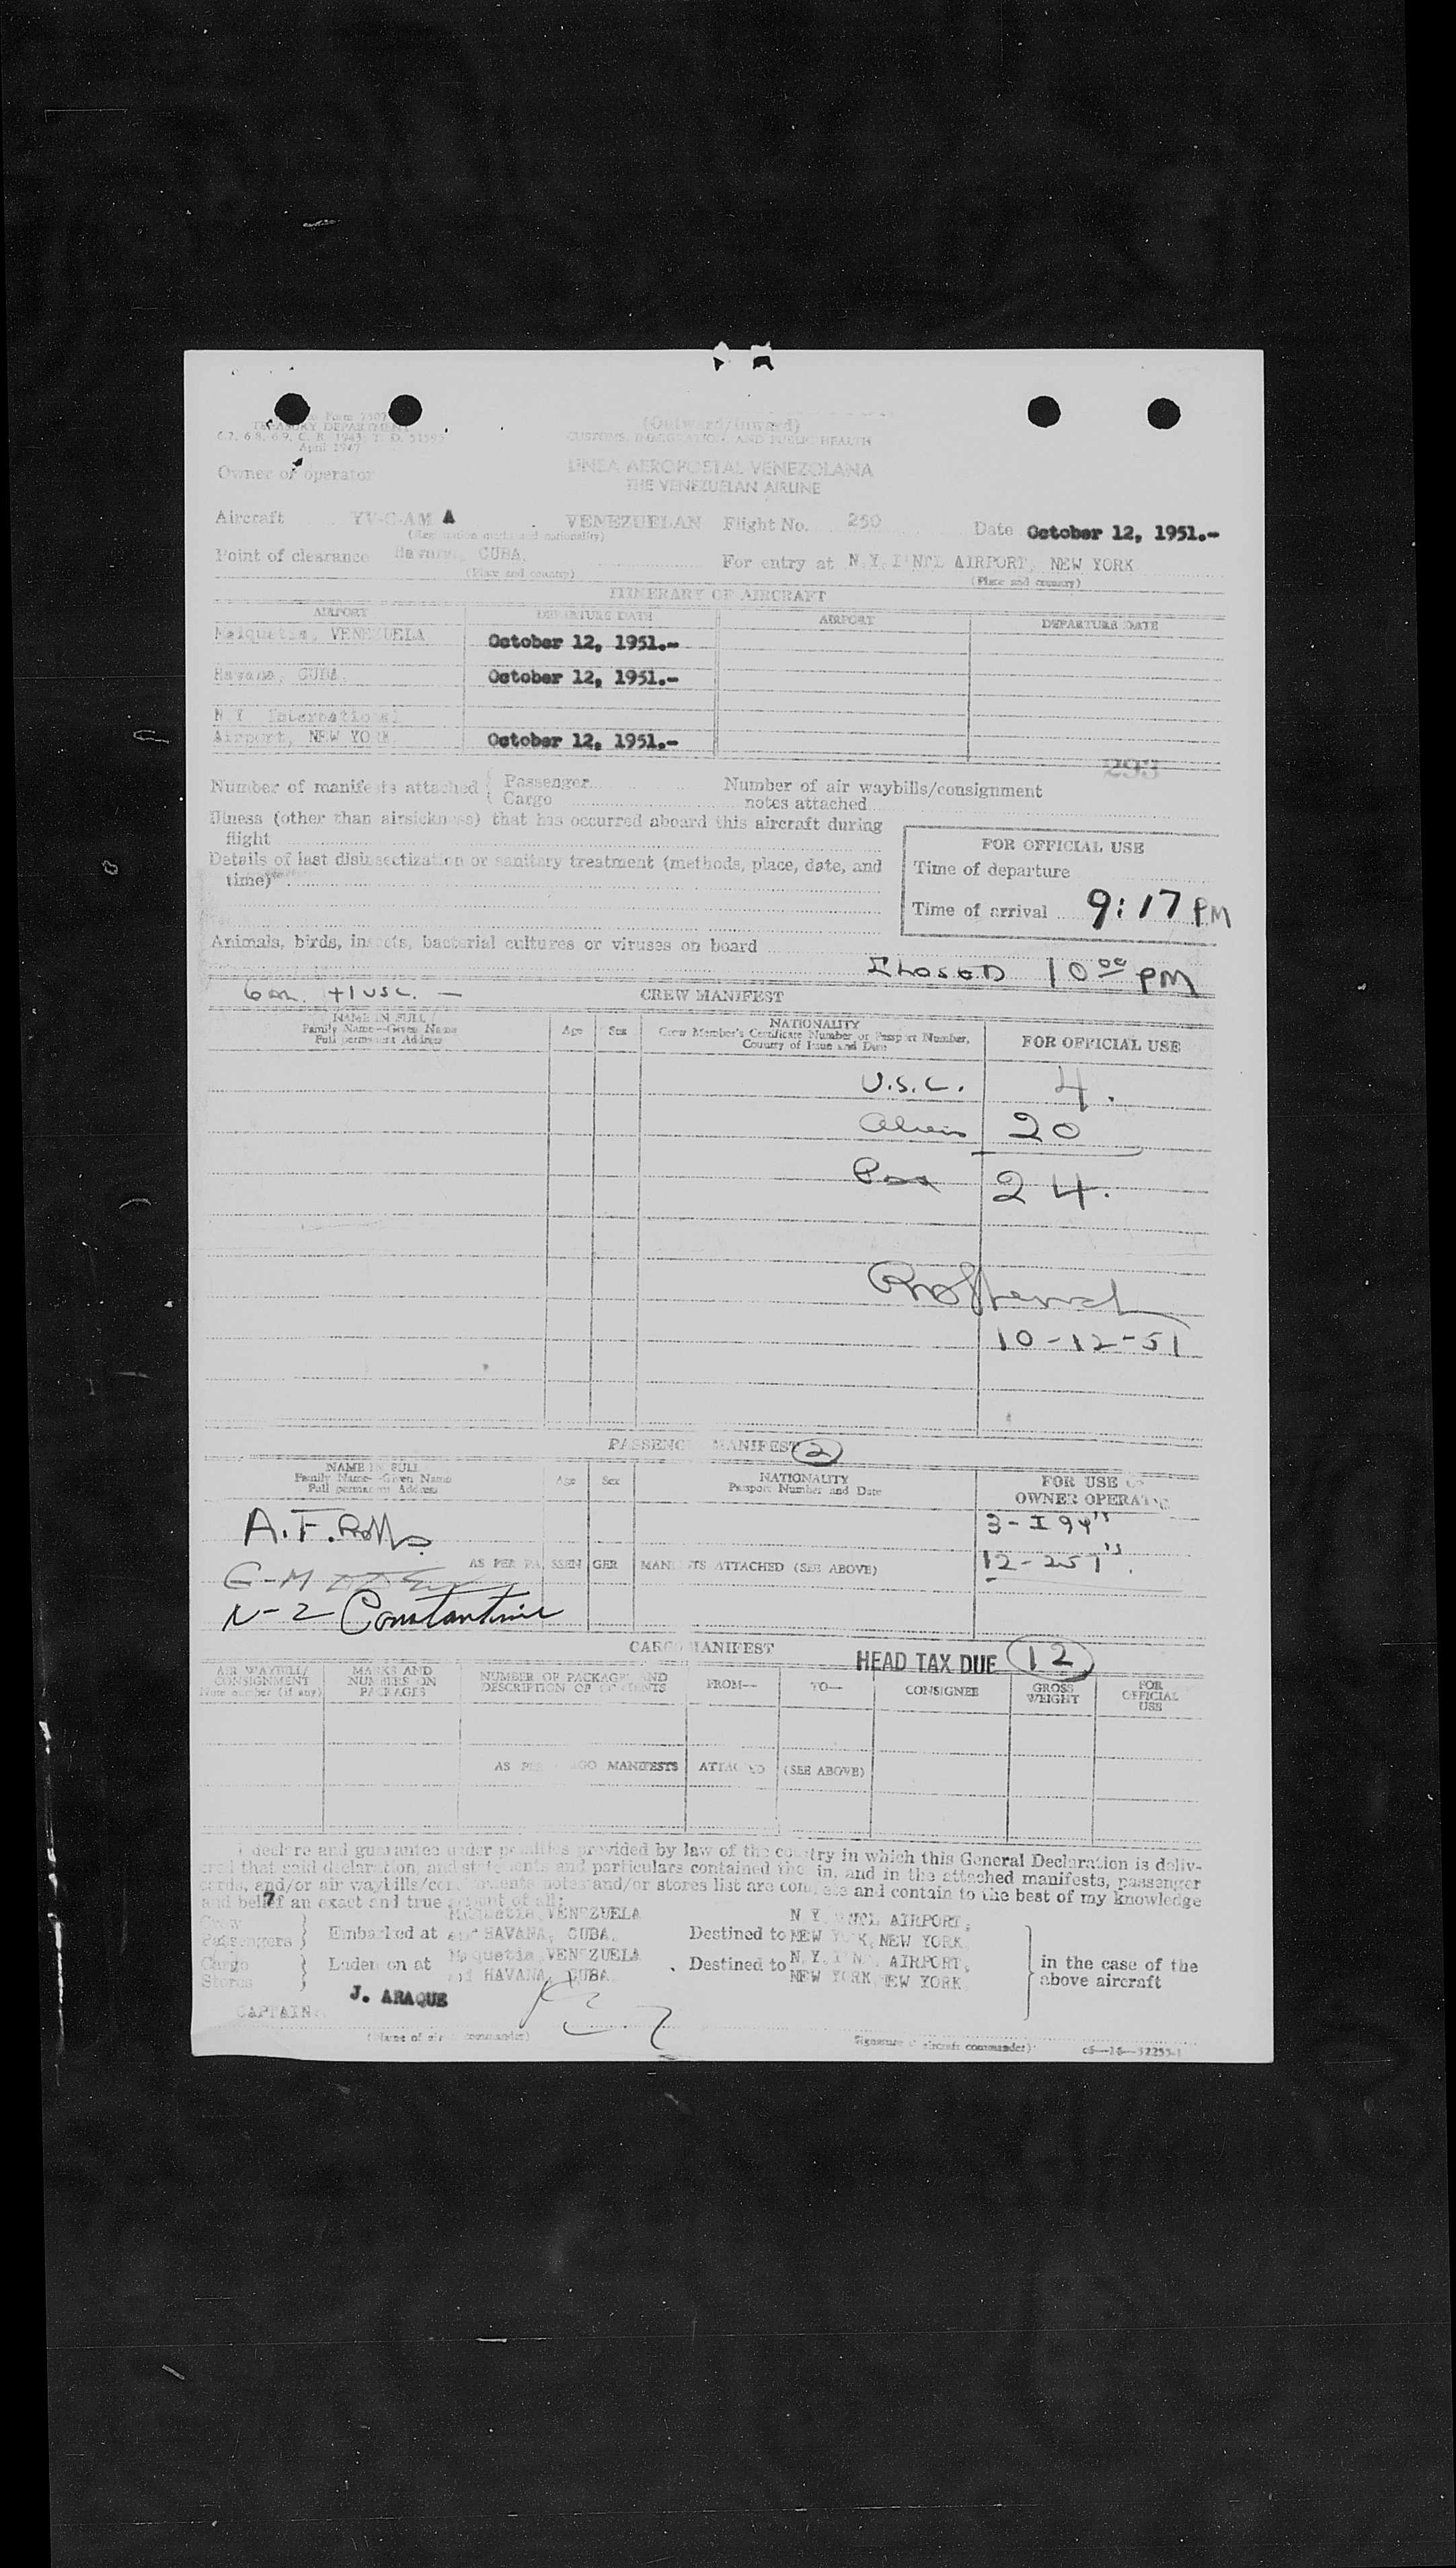 Form 7507
TREASURY DEPARTMENT
C.7, 6.8, 6.9, C. R. 1943; T. D. 51595
April 1947
(Outward/Inward)
CUSTOMS, IMMIGRATION, AND PUBLIC HEALTH
Owner or operator
LINEA AEROPOSTAL VENEZOLANA
THE VENEZUELAN AIRLINE
Aircraft YV-C-AM A VENEZUELAN Flight No. 250 Date October 12, 1951.-
(Registration marks and nationality)
Point of clearance Havana, CUBA. For entry at N.Y. INT'L AIRPORT, NEW YORK
(Place and country) (Place and country)
ITINERARY OF AIRCRAFT
AIRPORT DEPARTURE DATE AIRPORT DEPARTURE DATE
Maiquetia, VENEZUELA October 12, 1951.-
Havana, CUBA. October 12, 1951.-
N.Y. International
Airport, NEW YORK. October 12, 1951.-
293
Number of manifests attached { Passenger Number of air waybills/consignment
{ Cargo notes attached
Illness (other than airsickness) that has occurred aboard this aircraft during
flight
FOR OFFICIAL USE
Details of last disinsectization or sanitary treatment (methods, place, date, and
time)
Time of departure
Time of arrival 9:17 PM
Animals, birds, insects, bacterial cultures or viruses on board
CLOSED 10 00 PM
+1 USC. —
CREW MANIFEST
NAME IN FULL
Family Name—Given Name
Full permanent Address
Age Sex
NATIONALITY
Crew Member's Certificate Number or Passport Number,
Country of Issue and Date
FOR OFFICIAL USE
U.S.C. 4.
Aliens 20
Pax 24.
10-12-51
PASSENGER MANIFEST 2
NAME IN FULL
Family Name—Given Name
Full permanent Address
Age Sex
NATIONALITY
Passport Number and Date
FOR USE OF
OWNER OPERATOR
A.F. 3-I 94's
AS PER PASSENGER MANIFESTS ATTACHED (SEE ABOVE) 12-257's.
G-M
N-2 Constantine
CARGO MANIFEST
HEAD TAX DUE 12
AIR WAYBILL/
CONSIGNMENT
Note number (if any)
MARKS AND
NUMBERS ON
PACKAGES
NUMBER OF PACKAGES AND
DESCRIPTION OF CONTENTS
FROM— TO— CONSIGNEE
GROSS
WEIGHT
FOR
OFFICIAL
USE
AS PER CARGO MANIFESTS ATTACHED (SEE ABOVE)
I declare and guarantee under penalties provided by law of the country in which this General Declaration is deliv-
ered that said declaration, and statements and particulars contained therein, and in the attached manifests, passenger
cards, and/or air waybills/consignments notes and/or stores list are complete and contain to the best of my knowledge
and belief an exact and true account of all:
7
Crew
Passengers } Embarked at Maiquetia, VENEZUELA
and HAVANA, CUBA. Destined to N.Y. INT'L AIRPORT,
NEW YORK, NEW YORK
Cargo
Stores } Laden on at Maiquetia, VENEZUELA
and HAVANA, CUBA. Destined to N.Y. INT'L AIRPORT,
NEW YORK, NEW YORK
in the case of the
above aircraft
CAPTAIN: J. ARAQUE
(Name of aircraft commander) (Signature of aircraft commander) c6—16—52255-1